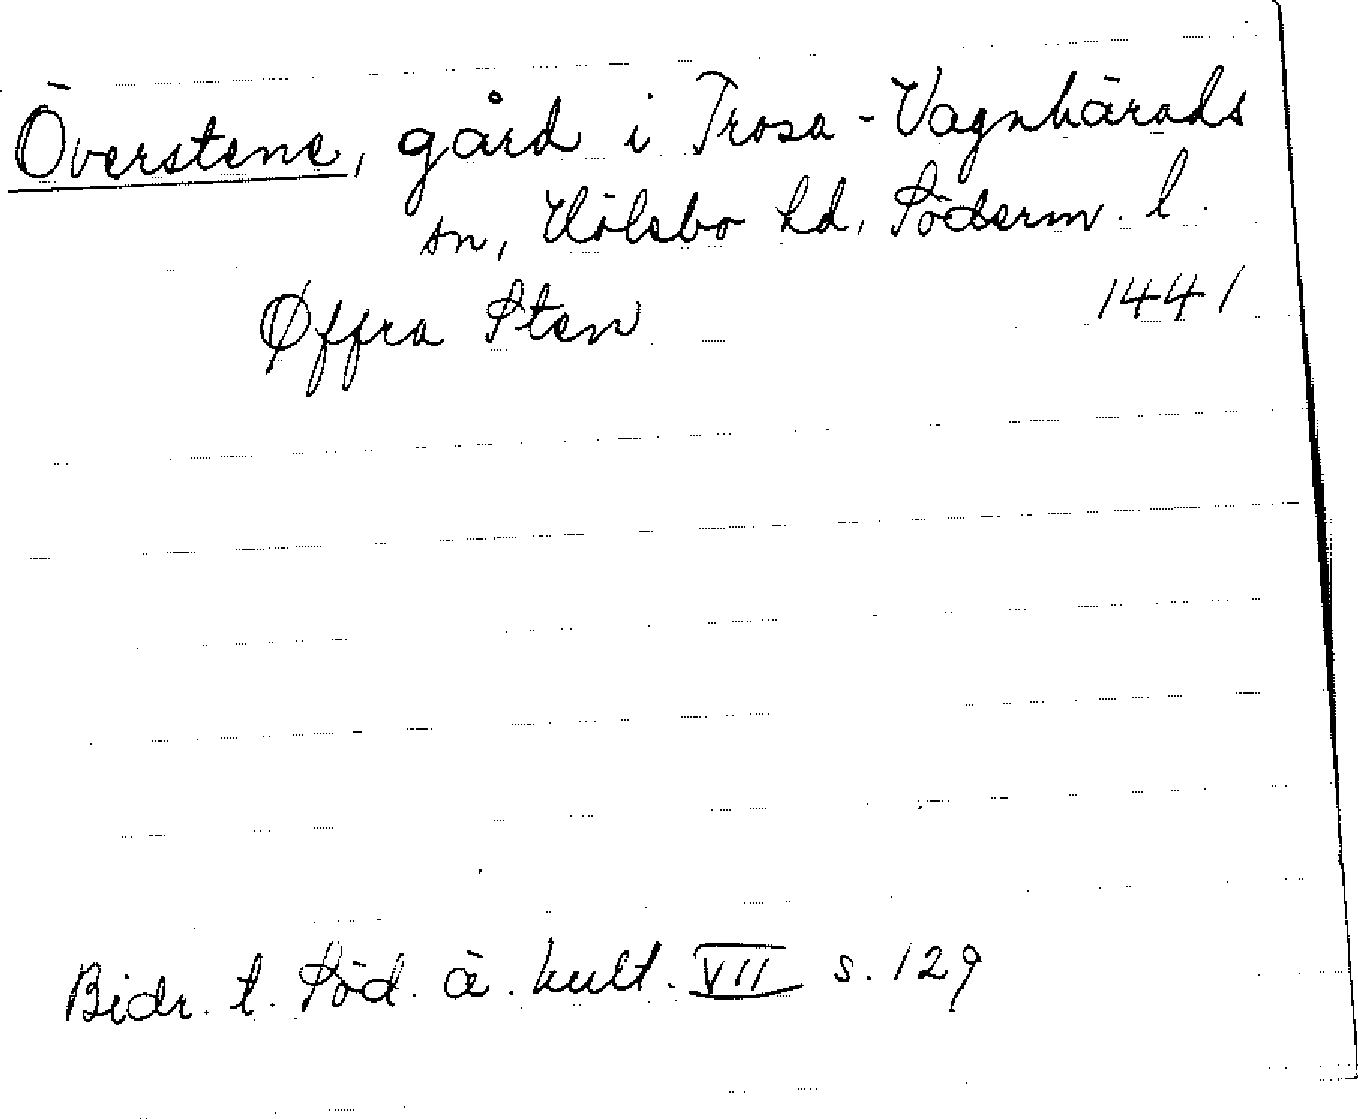 Överstene, gård i Trosa-Vagnhärads
sn, Hölebo hd, Söderm. l.
Øffra Sten 1441
Bidr. t. Söd. ä. kult. VII s. 129